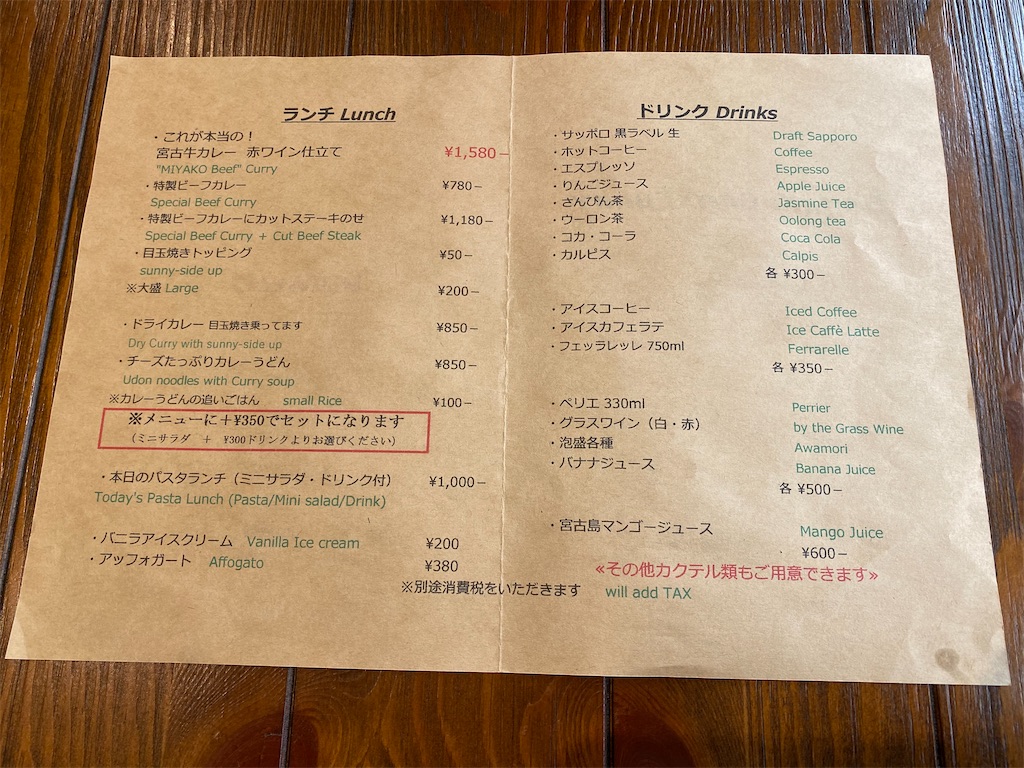 ランチ Lunch
・これが本当の！
宮古牛カレー 赤ワイン仕立て ¥1,580−
"MIYAKO Beef" Curry
・特製ビーフカレー ¥780−
Special Beef Curry
・特製ビーフカレーにカットステーキのせ ¥1,180−
Special Beef Curry + Cut Beef Steak
・目玉焼きトッピング ¥50−
sunny-side up
※大盛 Large ¥200−
・ドライカレー 目玉焼き乗ってます ¥850−
Dry Curry with sunny-side up
・チーズたっぷりカレーうどん ¥850−
Udon noodles with Curry soup
※カレーうどんの追いごはん small Rice ¥100−
※メニューに＋¥350でセットになります
（ミニサラダ ＋ ¥300ドリンクよりお選びください）
・本日のパスタランチ（ミニサラダ・ドリンク付） ¥1,000−
Today's Pasta Lunch (Pasta/Mini salad/Drink)
・バニラアイスクリーム Vanilla Ice cream ¥200
・アッフォガート Affogato ¥380
ドリンク Drinks
・サッポロ 黒ラベル 生 Draft Sapporo
・ホットコーヒー Coffee
・エスプレッソ Espresso
・りんごジュース Apple Juice
・さんぴん茶 Jasmine Tea
・ウーロン茶 Oolong tea
・コカ・コーラ Coca Cola
・カルピス Calpis
各 ¥300−
・アイスコーヒー Iced Coffee
・アイスカフェラテ Ice Caffè Latte
・フェッラレッレ 750ml Ferrarelle
各 ¥350−
・ペリエ 330ml Perrier
・グラスワイン（白・赤） by the Grass Wine
・泡盛各種 Awamori
・バナナジュース Banana Juice
各 ¥500−
・宮古島マンゴージュース Mango Juice
¥600−
≪その他カクテル類もご用意できます≫
※別途消費税をいただきます will add TAX